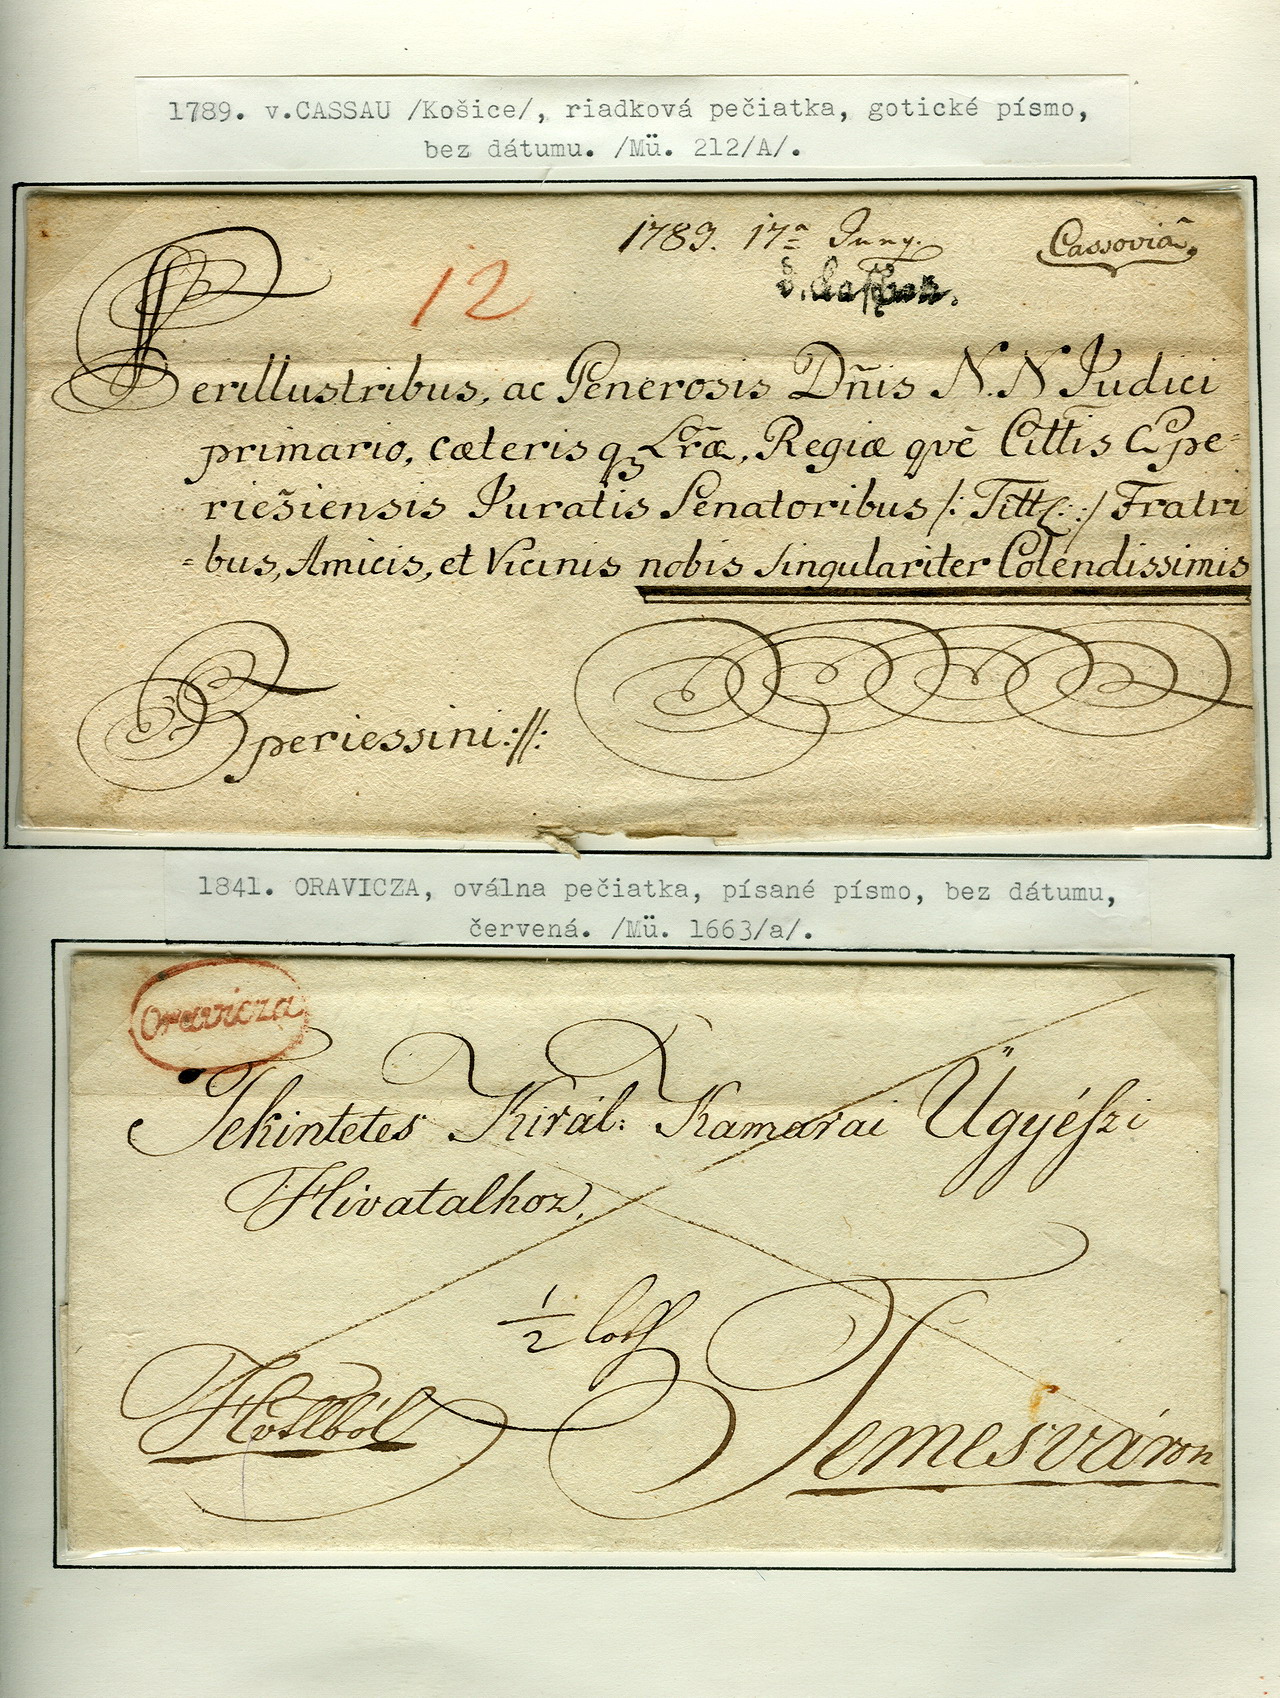 1789. v.CASSAU /Košice/, riadková pečiatka, gotické písmo,
bez dátumu. /Mü. 212/A/.
1789. 17ª Juny.
Cassoviâ,
12
v. Caschau.
Perillustribus, ac Generosis Dn̄is N. N Judici
primario, cæteris qꝫ Lr̄æ, Regiæ qvē Cittis Epe-
riešiensis Juratis Senatoribus /: Titt: :/ Fratri
=bus, Amicis, et Vicinis nobis singulariter Colendissimis
Eperiessini://:
1841. ORAVICZA, oválna pečiatka, písané písmo, bez dátumu,
červená. /Mü. 1663/a/.
Oravicza
Tekintetes Királ: Kamarai Ügyészi
Hivatalhoz,
1/2 loth
Temesváron